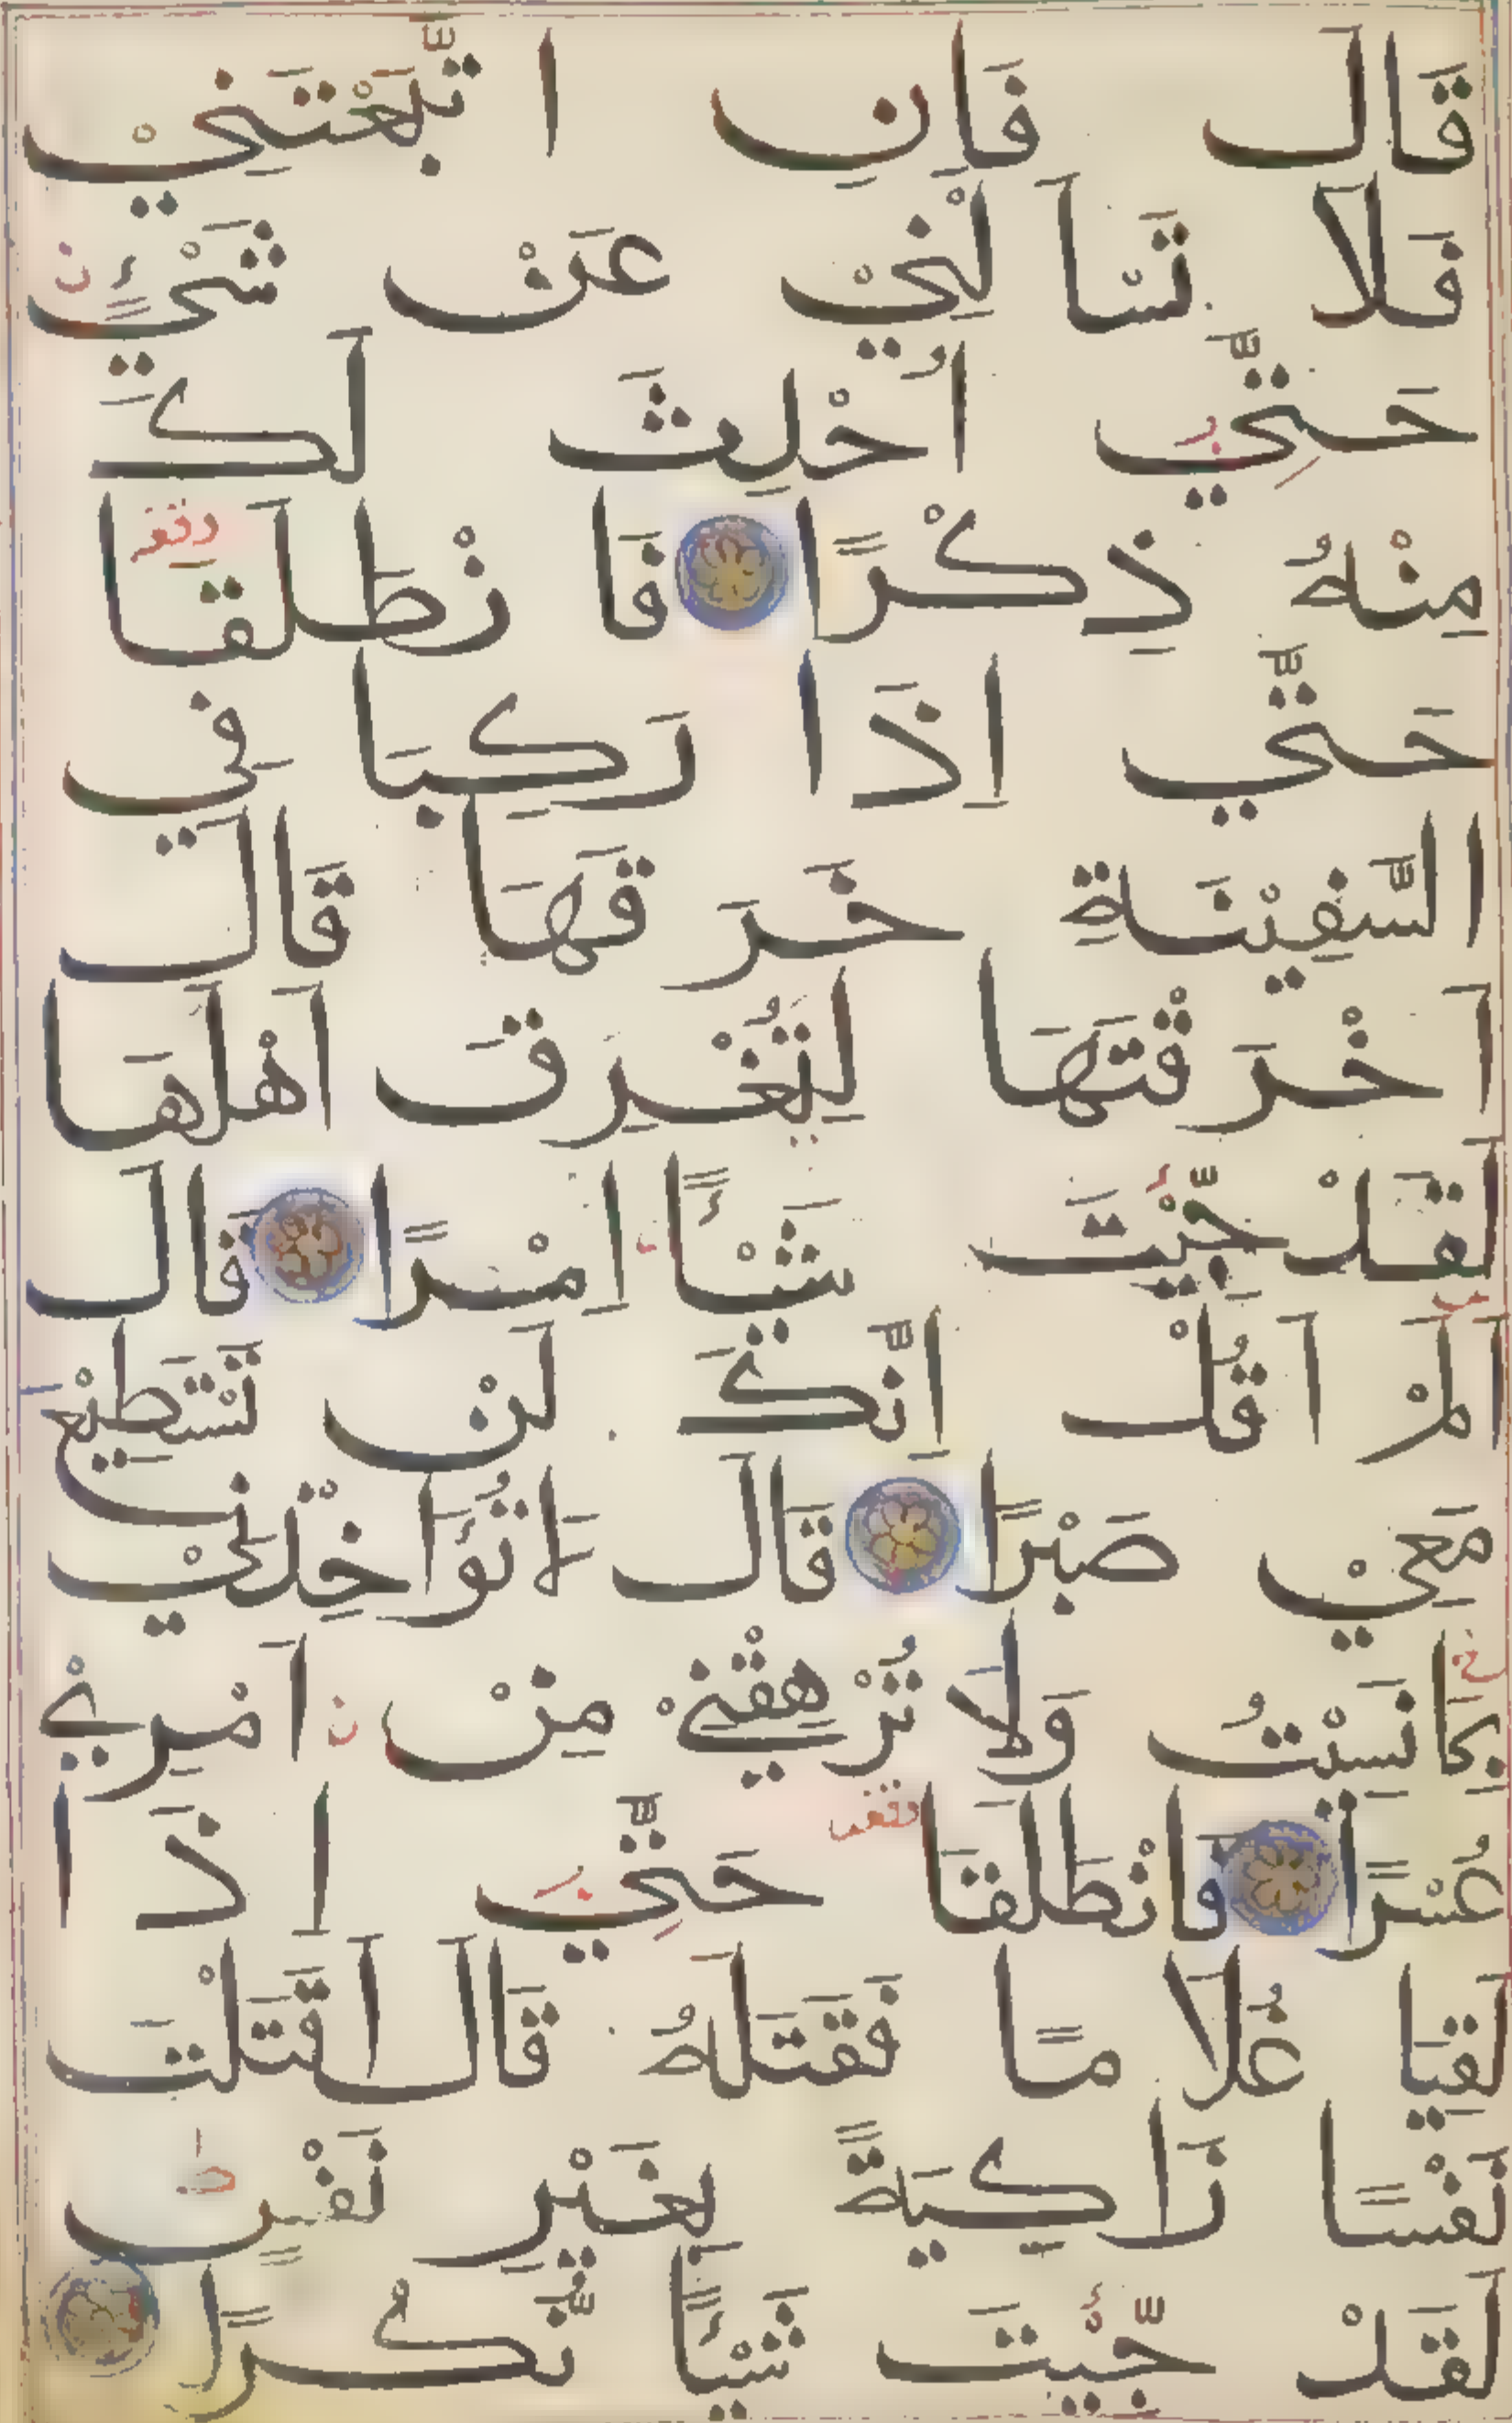 قَالَ فَاِنِ اتَّبَعْتَنِيْ
فَلَا تَسْاَلْنِيْ عَنْ شَيْءٍ
حَتّٰي اُحْدِثَ لَكَ
مِنْهُ ذِكْرًا فَانْطَلَقَا
حَتّٰي اِذَا رَكِبَا فِي
السَّفِيْنَةِ خَرَقَهَا قَالَ
اَخْرَقْتَهَا لِتُغْرِقَ اَهْلَهَا
لَقَدْ جِّئْتَ شَيْئًا اِمْرًا قَالَ
اَلَمْ اَقُلْ اِنَّكَ لَنْ تَسْتَطِيْعَ
مَعِيْ صَبْرًا قَالَ لَا تُؤَاخِذْنِيْ
بِمَا نَسِيْتُ وَلَا تُرْهِقْنِيْ مِنْ اَمْرِيْ
عُسْرًا فَانْطَلَقَا حَتّٰي اِذَا
لَقِيَا غُلَامًا فَقَتَلَهُ قَالَ اَقَتَلْتَ
نَفْسًا زَاكِيَةً بِغَيْرِ نَفْسٍ
لَقَدْ جِّئْتَ شَيْئًا نُّكْرًا